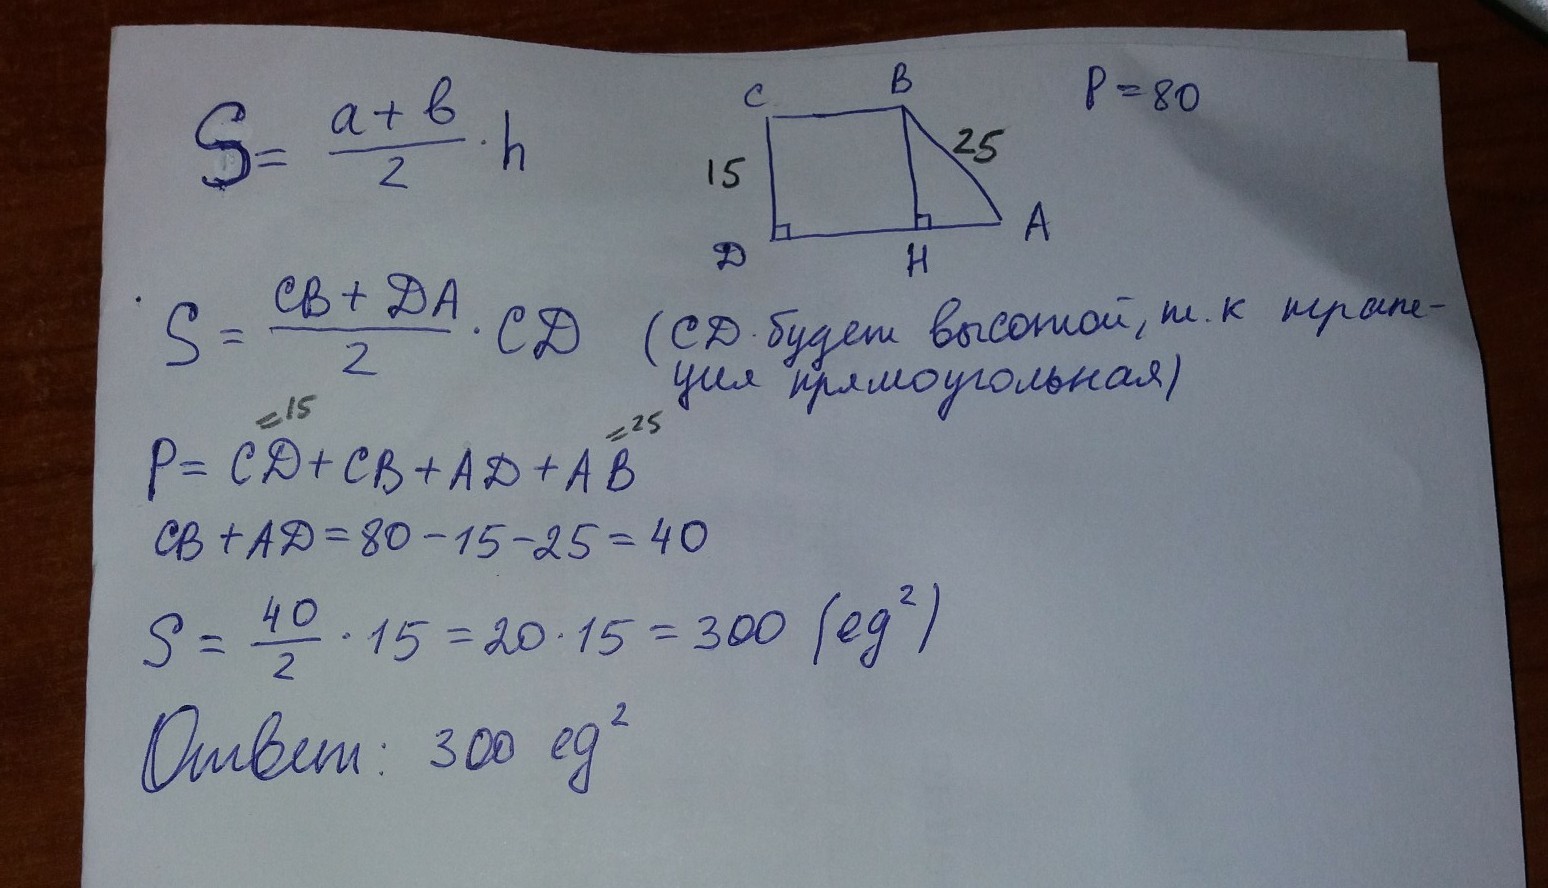 S = (a + b)/2 · h
C B P = 80
15 25
D H A
S = (CB + DA)/2 · CD (CD будет высотой, т.к трапе-
ция прямоугольная)
=15 =25
P = CD + CB + AD + AB
CB + AD = 80 - 15 - 25 = 40
S = 40/2 · 15 = 20 · 15 = 300 (ед²)
Ответ: 300 ед²